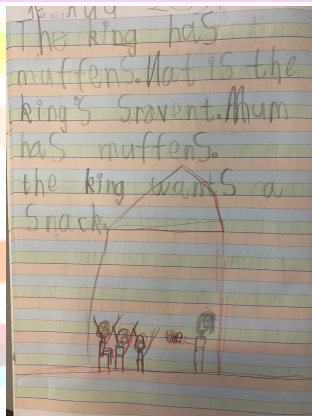 The king has
muffens. Nat is the
king's sravent. Mum
has muffens.
the king wants a
snack.